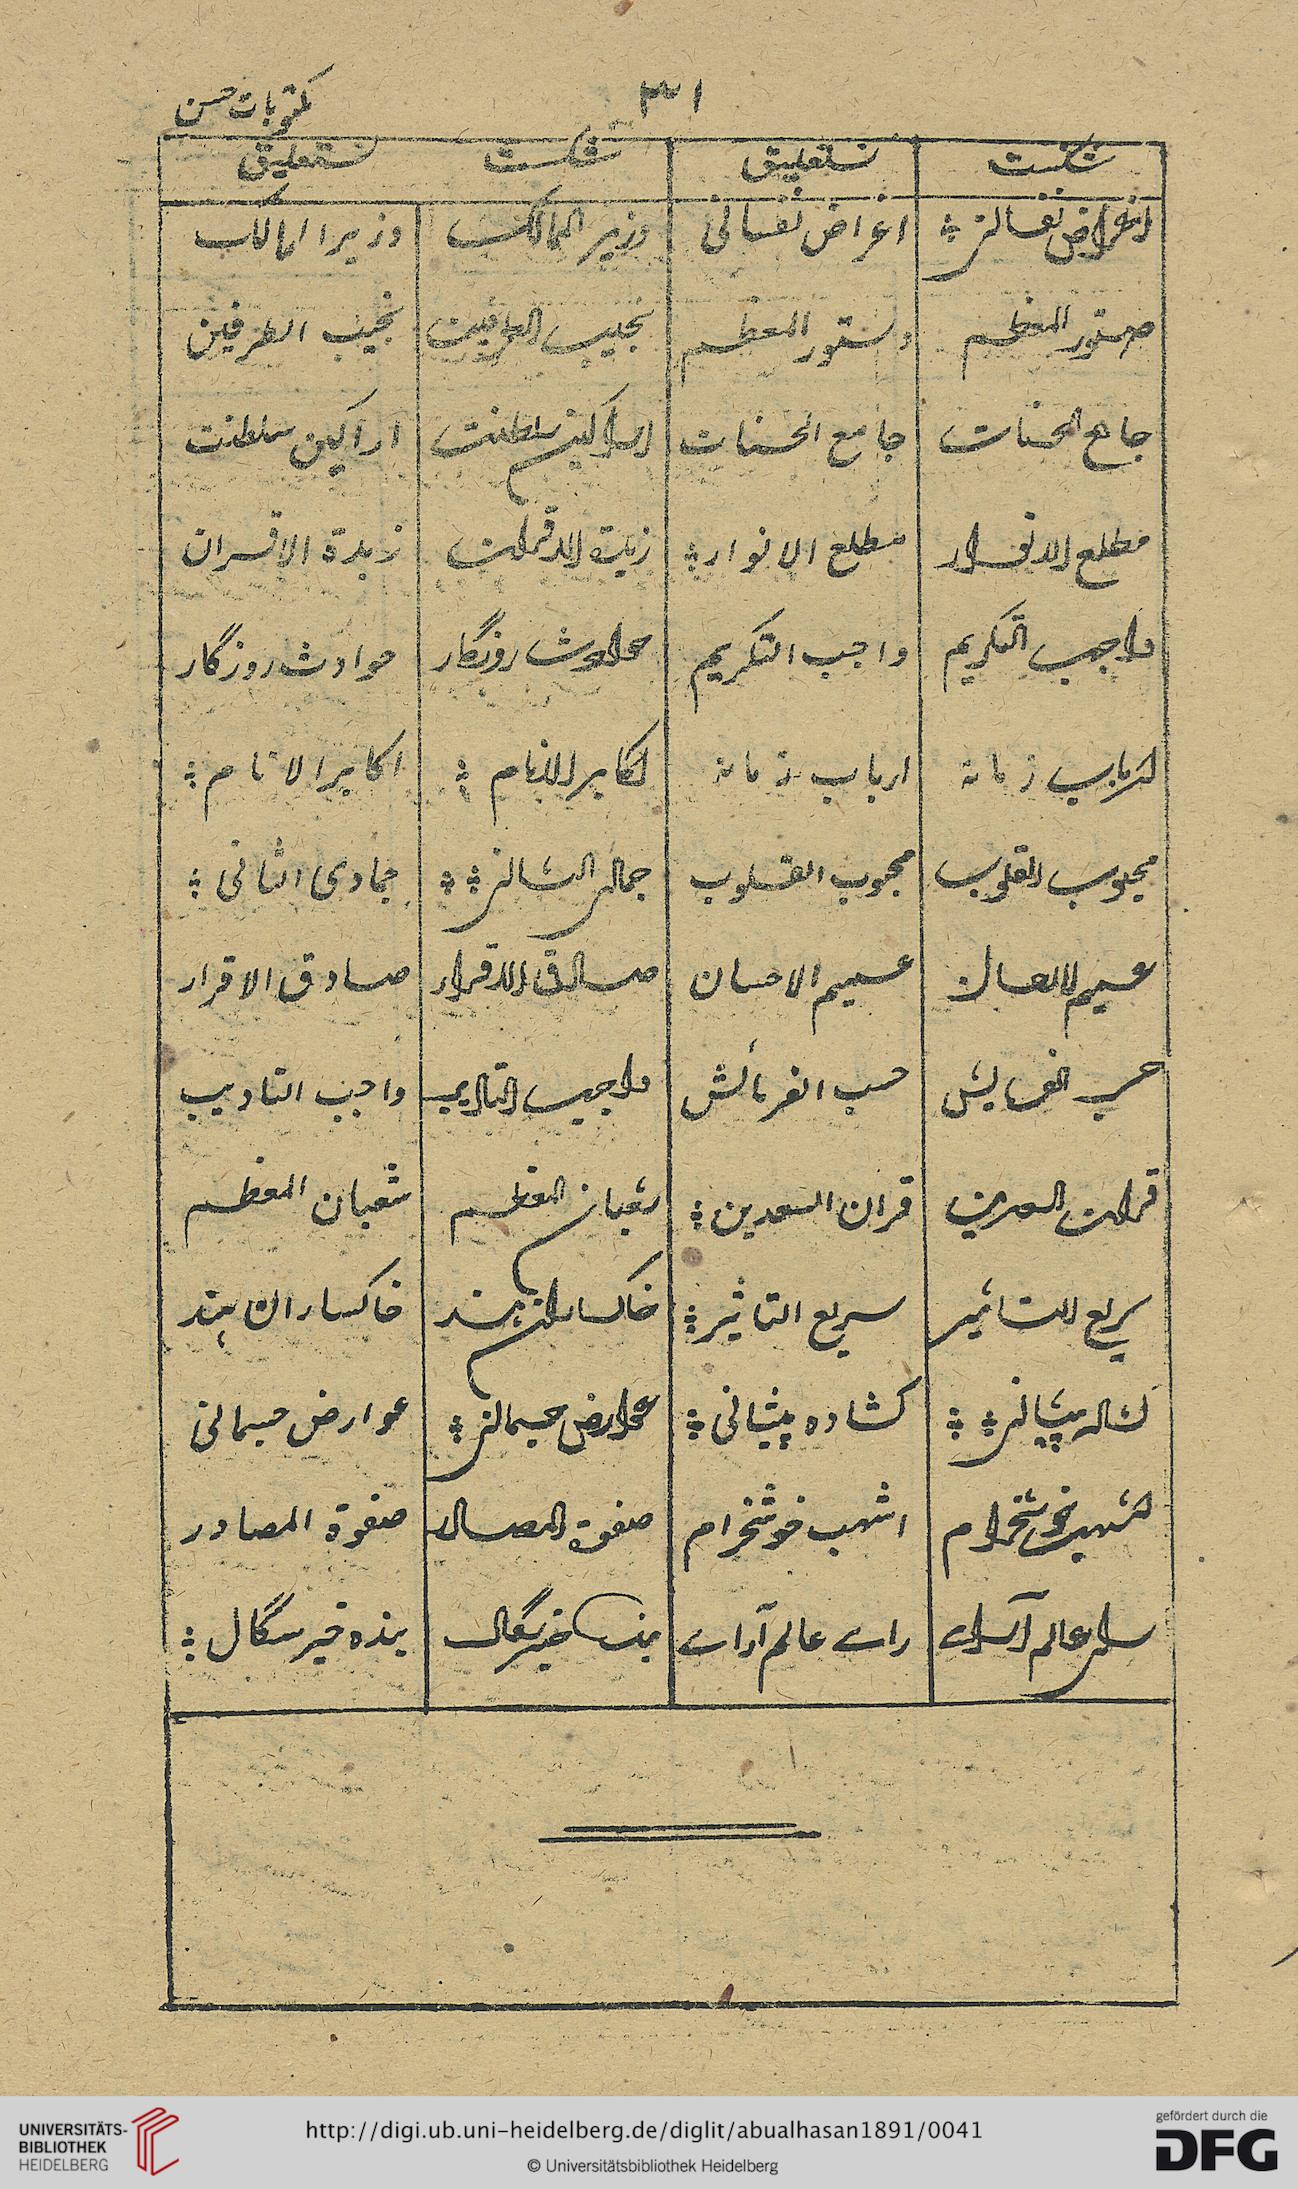 ٣١
مکتوبات حسن
شکست نستعلیق شکست نستعلیق
اغراض نفسانی اغراض نفسانی وزیر الممالک وزیرا لممالک
دستور المعظم دستور المعظم نجیب الطرفین نجیب الطرفین
جامع الحسنات جامع الحسنات اراکین سلطنت اراکین سلطنت
مطلع الانوار مطلع الانوار زبدة الاقران زبدة الاقران
واجب التکریم واجب التکریم حوادث روزگار حوادث روزگار
ارباب زمانہ ارباب زمانہ اکابر الانام اکابر الانام
محبوب القلوب محبوب القلوب جمادی الثانی جمادی الثانی
عمیم الاحسان عمیم الاحسان صادق الاقرار صادق الاقرار
حسب الفرمایش حسب الفرمائش واجب التادیب واجب التادیب
قران السعدین قران السعدین شعبان المعظم شعبان المعظم
سریع التاثیر سریع التاثیر خاکساران ہند خاکساران ہند
کشادہ پیشانی کشادہ پیشانی عوارض جسمانی عوارض جسمانی
اشہب خوشخرام اشہب خوشخرام صفوة المصادر صفوة المصادر
رای عالم آرای راے عالم آراے بندہ خیرسگال بندہ خیر سگال
UNIVERSITÄTS-
BIBLIOTHEK
HEIDELBERG
http://digi.ub.uni-heidelberg.de/diglit/abualhasan1891/0041
© Universitätsbibliothek Heidelberg
gefördert durch die
DFG